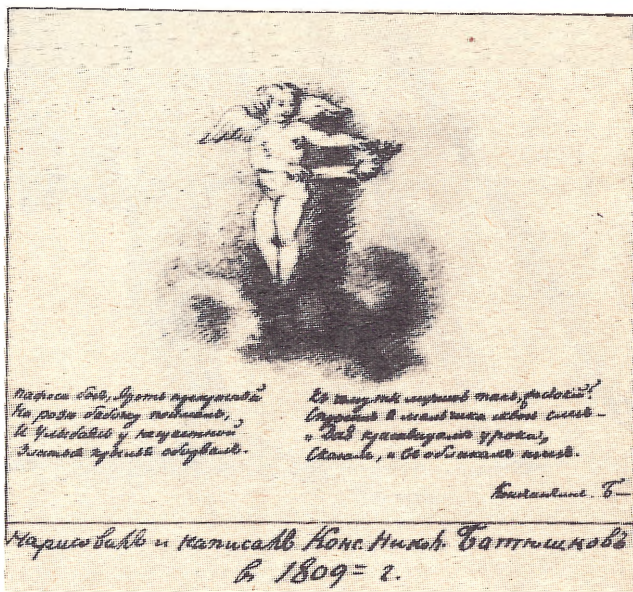 Пафоса богъ, Эротъ прекрасный
На розѣ бабочку поймалъ,
И улыбаясь у нещастной
Златыя крылья оборвалъ.
Къ чему ты мучишь такъ, жестокій?
Спросилъ я мальчика сквозь слезъ –
„Даю красавицамъ уроки,
Сказалъ, и въ облакахъ изчезъ.
Константинъ. Б–
Нарисовалъ и написалъ Конс. Никол. Батюшковъ
въ 1809= г.